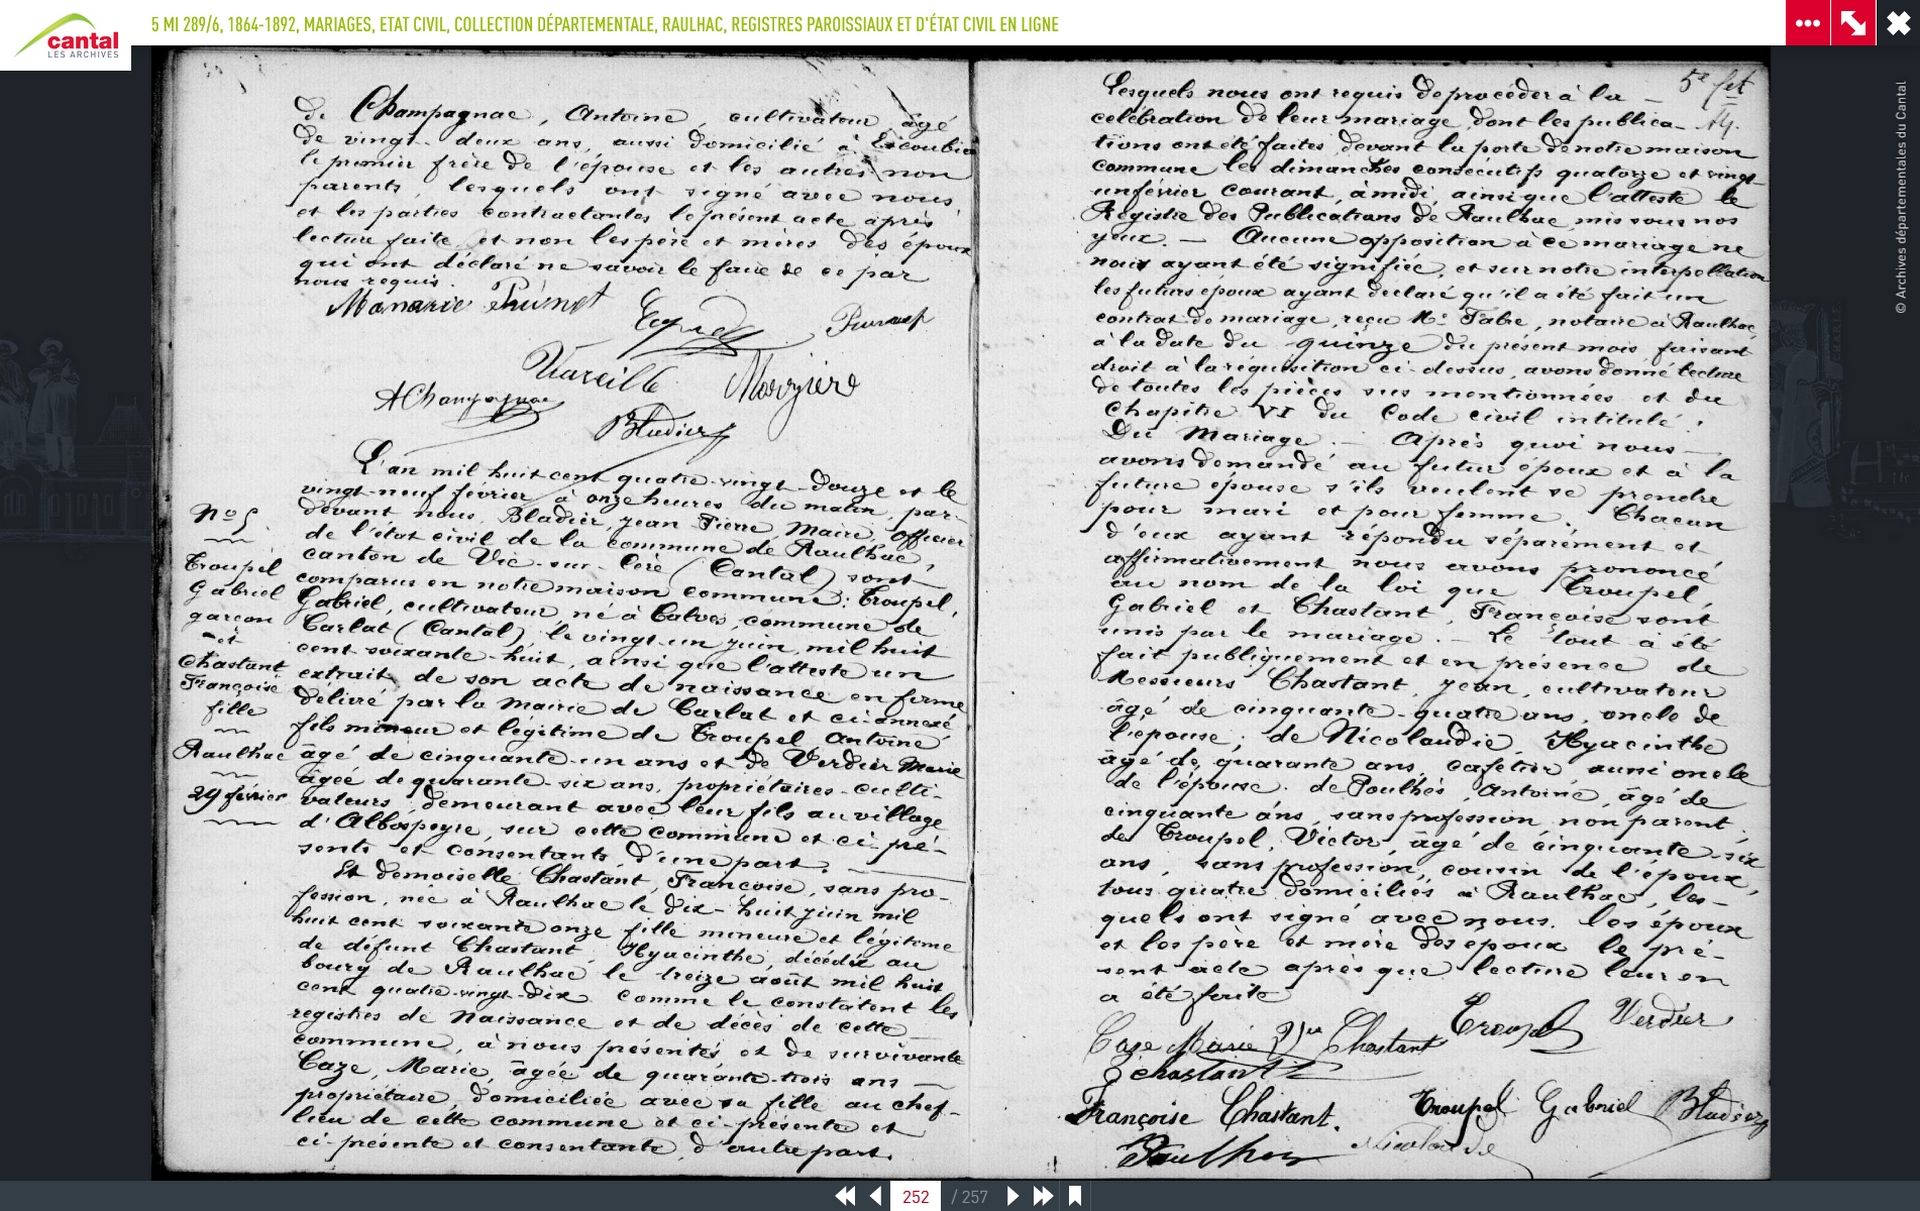 5 MI 289/6, 1864-1892, MARIAGES, ETAT CIVIL, COLLECTION DÉPARTEMENTALE, RAULHAC, REGISTRES PAROISSIAUX ET D'ÉTAT CIVIL EN LIGNE
cantal
LES ARCHIVES
© Archives départementales du Cantal
de Champagnac, Antoine, cultivateur âgé
de vingt-deux ans, aussi domicilié à
le premier frère de l'épouse et les autres non
parents, lesquels ont signé avec nous
et les parties contractantes le présent acte après
lecture faite et non les père et mères des époux
qui ont déclaré ne savoir le faire de ce par
nous requis.
Vareille
AChampagnac
Bladier
L'an mil huit cent quatre-vingt-douze et le
vingt-neuf février à onze heures du matin, par-
devant nous, Bladier, Jean Pierre, Maire, officier
de l'état civil de la commune de Raulhac,
canton de Vic-sur-Cère (Cantal) sont
comparus en notre maison commune: Troupel,
Gabriel, cultivateur, né à Calves, commune de
Carlat (Cantal) le vingt un juin, mil huit
cent soixante-huit, ainsi que l'atteste un
extrait de son acte de naissance en forme
délivré par la mairie de Carlat et ci-annexé
fils mineur et légitime de Troupel Antoine
âgé de cinquante-un ans et de Verdier Marie
âgée de quarante-six ans, propriétaires-culti-
vateurs, demeurant avec leur fils au village
d'Albospeyre, sur cette commune et ci-pré-
sents et consentants, d'une part.
Et demoiselle Chastant, Françoise, sans pro-
fession, née à Raulhac le dix-huit juin mil
huit cent soixante onze fille mineure et légitime
de défunt Chastant, Hyacinthe, décédé au
bourg de Raulhac le treize août mil huit
cent quatre-vingt-dix comme le constatent les
registres de naissance et de décès de cette
commune, à nous présentés, et de survivante
Caze, Marie, âgée de quarante-trois ans
propriétaire, domiciliée avec sa fille au chef-
lieu de cette commune et ci-présente et
ci-présente et consentante, d'autre part.
No 5
Troupel
Gabriel
garçon
et
Chastant
Françoise
fille
Raulhac
29 février
5e fet
Lesquels nous ont requis de procéder à la
célébration de leur mariage dont les publica-
tions ont été faites devant la porte de notre maison
commune les dimanches consécutifs quatorze et vingt-
un février courant, à midi, ainsi que l'atteste le
Registre des Publications de Raulhac mis sous nos
yeux. — Aucune opposition à ce mariage ne
nous ayant été signifiée, et sur notre interpellation
les futurs époux ayant déclaré qu'il a été fait un
contrat de mariage, reçu Me Fabre, notaire à Raulhac
à la date du quinze du présent mois faisant
droit à la réquisition ci-dessus, avons donné lecture
de toutes les pièces sus mentionnées et du
chapitre VI du Code civil intitulé:
Du Mariage. — Après quoi nous
avons demandé au futur époux et à la
future épouse s'ils veulent se prendre
pour mari et pour femme. Chacun
d'eux ayant répondu séparément et
affirmativement nous avons prononcé
au nom de la loi que Troupel,
Gabriel et Chastant, Françoise sont
unis par le mariage. — Le tout a été
fait publiquement et en présence de
Messieurs Chastant, Jean, cultivateur
âgé de cinquante-quatre ans, oncle de
l'épouse; de Nicolaudie, Hyacinthe
âgé de quarante ans, cafetier, aussi oncle
de l'épouse. de Poulhès, Antoine, âgé de
cinquante ans, sans profession, non parent.
de Troupel, Victor, âgé de cinquante-six
ans, sans profession, cousin de l'époux,
tous quatre domiciliés à Raulhac, les-
quels ont signé avec nous. les époux
et les père et mère des époux le pré-
sent acte après que lecture leur en
a été faite
Caze Marie Vve Chastant Troupel Verdier
Chastant
Françoise Chastant. Troupel Gabriel Bladier
Poulhès Nicolaudie
252 / 257